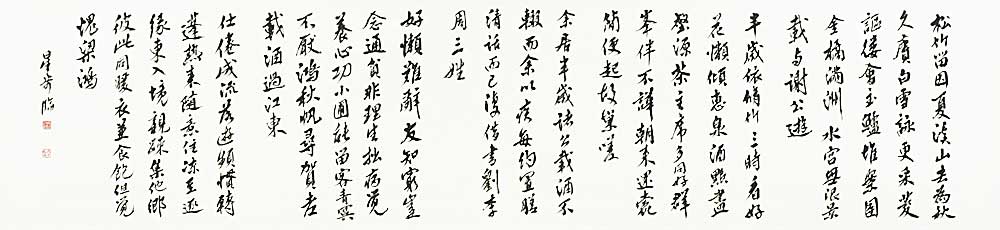 松竹留因夏溪山去為秋
久賡白雪詠更采菱
謳縷會玉鱸堆案團
金橘滿洲水宮無限景
載與謝公遊
半歲依脩竹三時看好
花懶傾惠泉酒點盡
壑源茶主席多同好群
峯伴不譁朝來還蠹
簡便起故巢嗟
余居半歲諸公載酒不
輟而余以疾每約置膳
清話而已復借書劉李
周三姓
好懶難辭友知窮豈
念通貧非理生拙病覺
養心功小圃能留客青冥
不厭鴻秋帆尋賀老
載酒過江東
仕倦成流落遊頻慣轉
蓬熱來隨意住涼至逐
緣東入境親疎集他鄉
彼此同暖衣兼食飽但覺
愧梁鴻
星臨